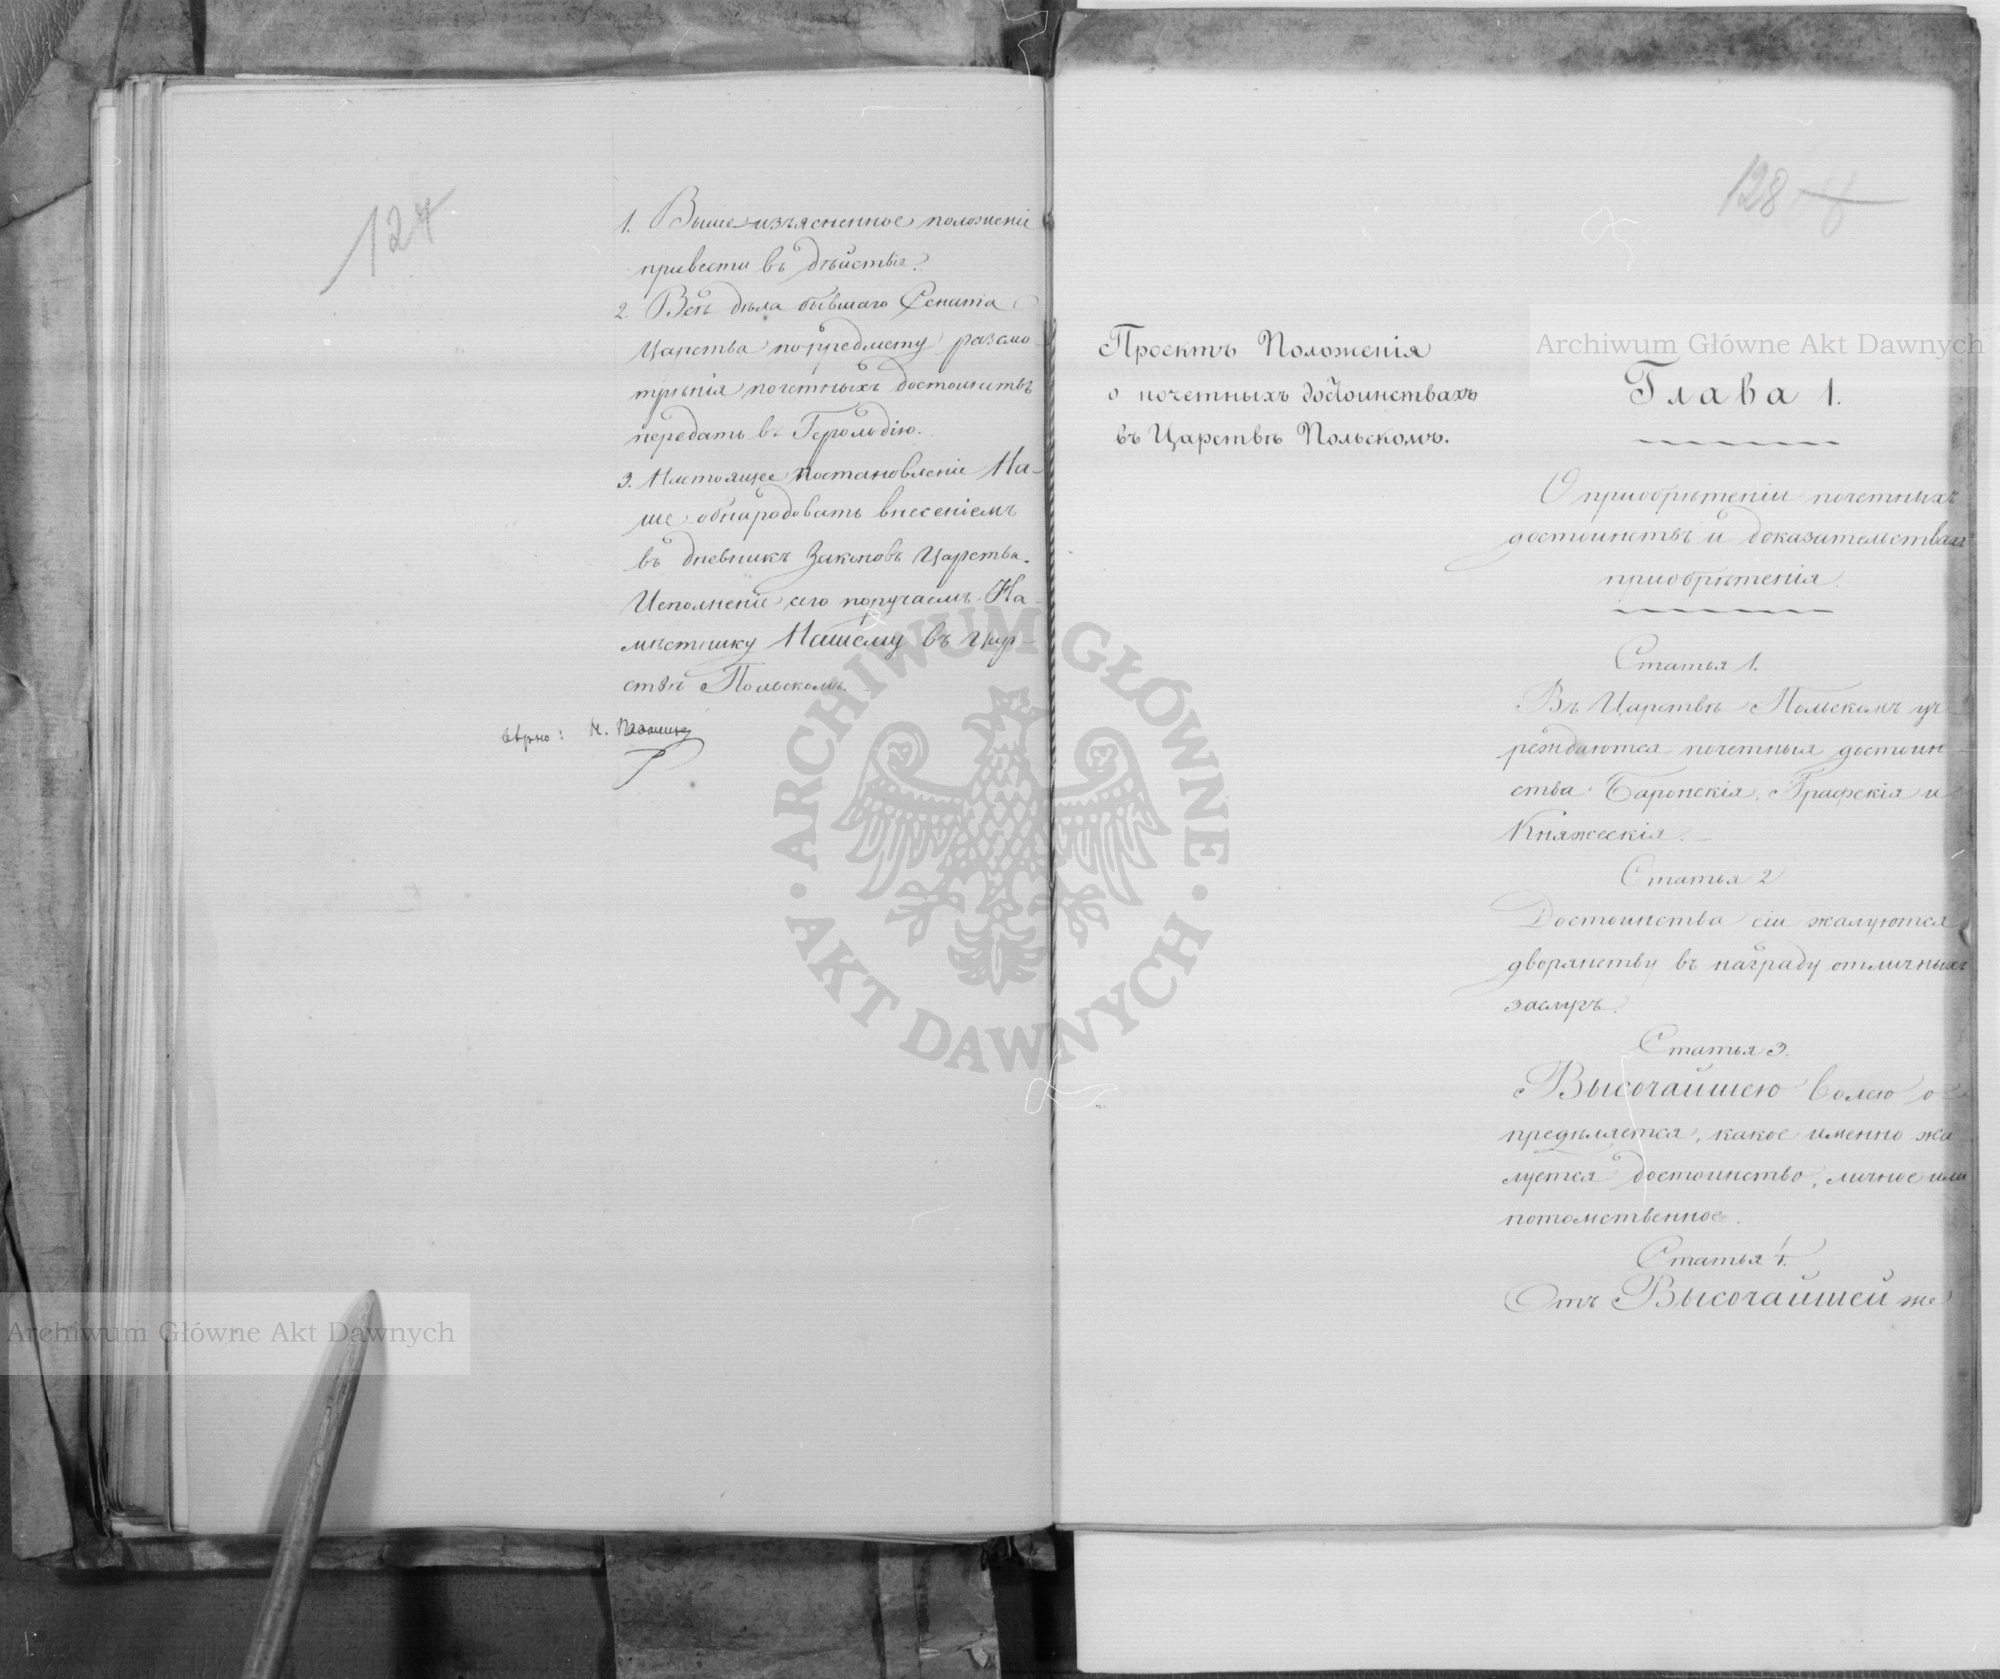 127
1. Вышеизъясненное положеніе
привести въ дѣйствіе.
2. Всѣ дѣла бывшаго Сената
Царства по предмету разсмо
трѣнія почетныхъ достоинствъ
передать въ Герольдію.
3. Настоящее постановленіе На-
ше обнародовать внесеніемъ
въ дневникъ Законовъ Царства.
Исполненіе сего поручаемъ На-
мѣстнику Нашему въ Цар-
ствѣ Польскомъ.
вѣрно: Н.
128
Проектъ Положенія
о почетныхъ достоинствахъ
въ Царствѣ Польскомъ.
Глава 1.
О пріобрѣтеніи почетныхъ
достоинствъ и доказательствахъ
пріобрѣтенія
Статья 1.
Въ Царствѣ Польскомъ уч-
реждаются почетныя достоин-
ства Баронскія, Графскія и
Княжескія.
Статья 2
Достоинства сіи жалуются
дворянству въ награду отличныхъ
заслугъ.
Статья 3.
Высочайшею волею о-
предѣляется, какое именно жа
луется достоинство, личное или
потомственное.
Статья 4.
Отъ Высочайшей же
Archiwum Główne Akt Dawnych
Archiwum Główne Akt Dawnych
ARCHIWUM GŁÓWNE AKT DAWNYCH